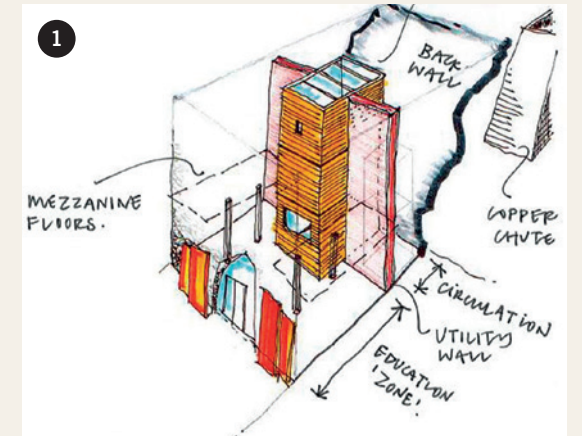 1
BACK
WALL
MEZZANINE
FLOORS.
COPPER
CHUTE
CIRCULATION
UTILITY
WALL
EDUCATION
'ZONE'